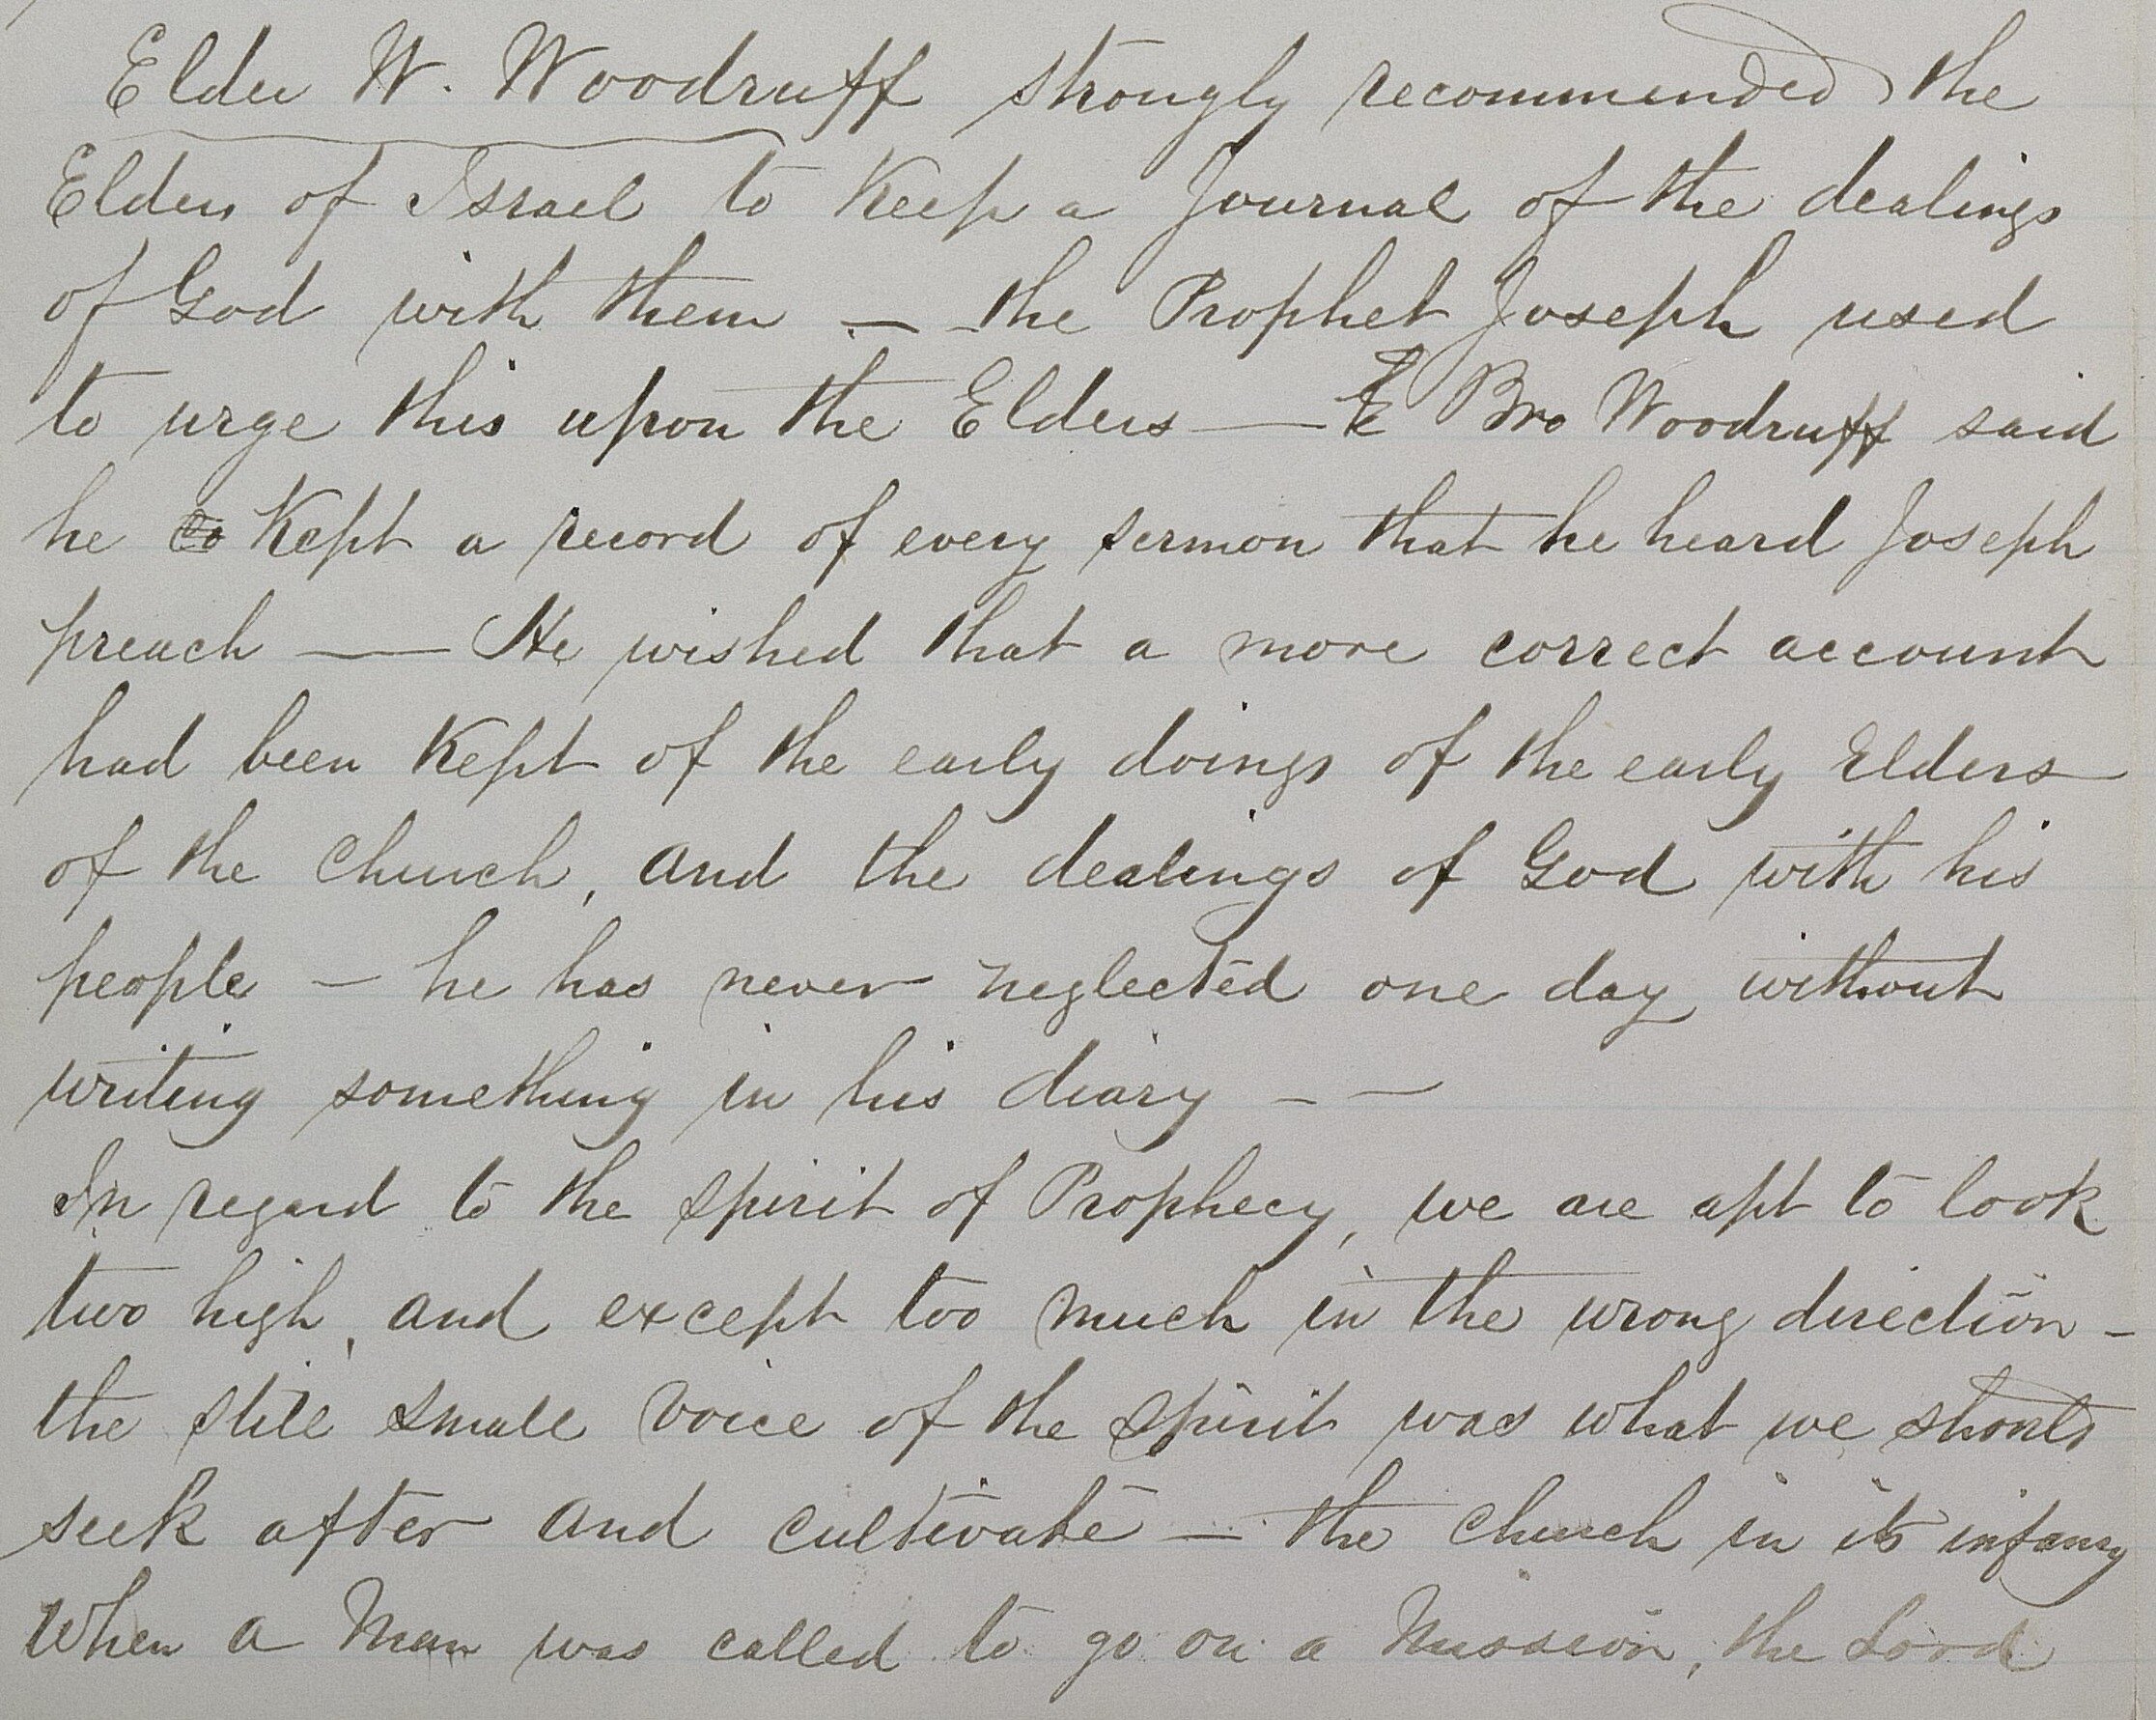 Elder W. Woodruff strongly recommended the
Elders of Israel to Keep a Journal of the dealings
of God with them — the Prophet Joseph used
to urge this upon the Elders — Bro Woodruff said
he Kept a record of every sermon that he heard Joseph
preach — He wished that a more correct account
had been Kept of the early doings of the early Elders
of the Church, and the dealings of God with his
people — he has never neglected one day without
writing something in his diary — —
In regard to the spirit of Prophecy, we are apt to look
two high, and except too much in the wrong direction —
the still small voice of the spirit was what we should
seek after and cultivate — the Church in its infancy
When a Man was called to go on a Mission, the Lord